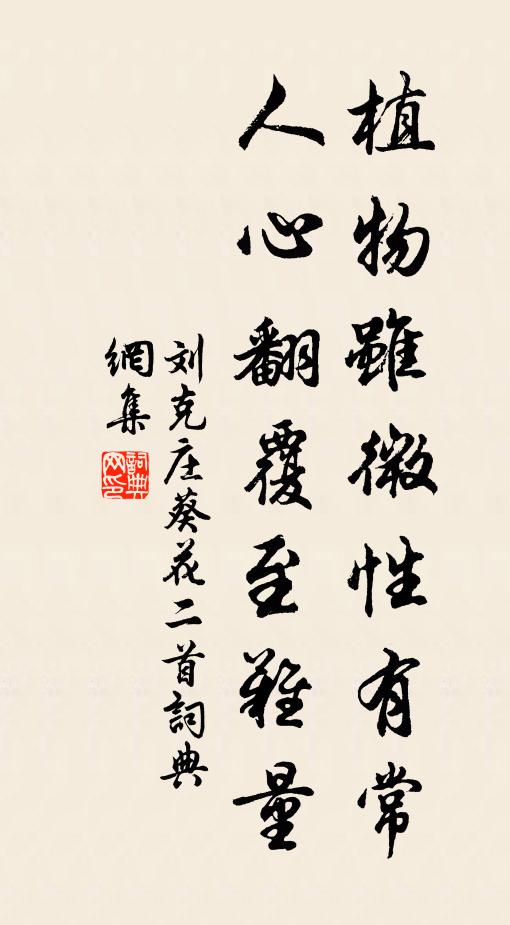 植物雖微性有常
人心翻覆至難量
刘克庄葵花二首詞典
網集
詞典
网印